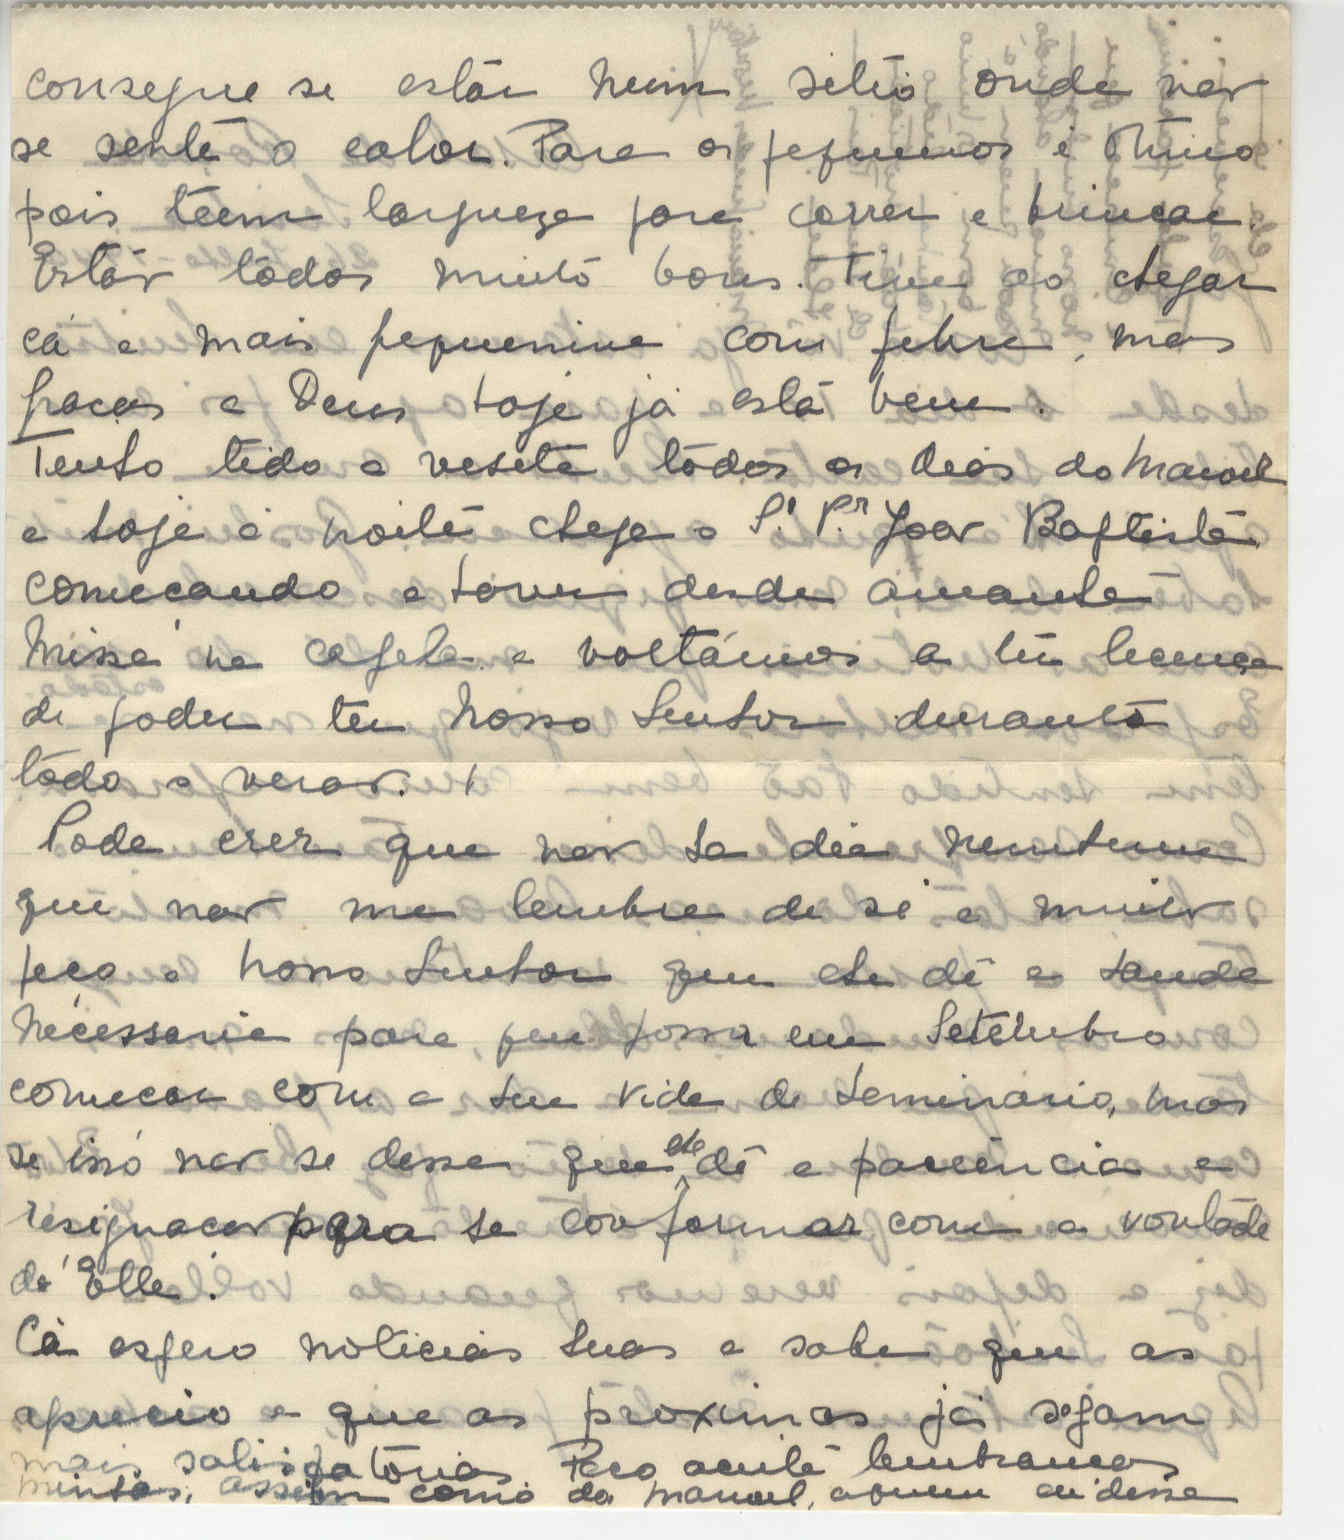 consegue se estár num sitio onde não
se sente o calor. Para os pequenos é ótimo
pois teem largueza para correr e brincar.
Estão tôdos muito bons. Tive ao chegar
cá a mais pequenina com febre, mas
graças a Deus hoje já está bem.
Tenho tido a vesita tôdos os dias do Manoel
e hoje á noite chega o S.r P.e João Baptista
começando a haver desde amanhã
Missa na capela e voltámos a ter licença
de poder ter Nosso Senhor durante
tôdo o verão.
Pode crer que não ha dia nenhum
que não me lembre de si e muito
peço a Nosso Senhor que lhe dê a saude
necessaria para que possa em Setembro
começar com a sua vida de seminario, mas
se isso não se desse que lhe dê a paciencia e
resignação para se conformar com a vontade
de Elle.
Cá espero noticias suas e sabe que as
aprecio e que as proximas já sejam
mais satisfatorias Peço aceite lembranças
minhas, assim como do Manuel, a quem eu disse